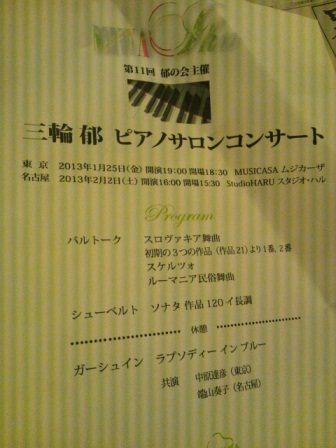 第11回 郁の会主催
三輪 郁 ピアノサロンコンサート
東 京 2013年1月25日(金) 開演19:00 開場18:30 MUSICASA ムジカーザ
名古屋 2013年2月2日(土) 開演16:00 開場15:30 StudioHARU スタジオ・ハル
Program
バルトーク スロヴァキア舞曲
初期の3つの作品(作品21)より1番、2番
スケルツォ
ルーマニア民俗舞曲
シューベルト ソナタ 作品 120 イ長調
休憩
ガーシュイン ラプソディー イン ブルー
共演 中原達彦(東京)
端山奏子(名古屋)